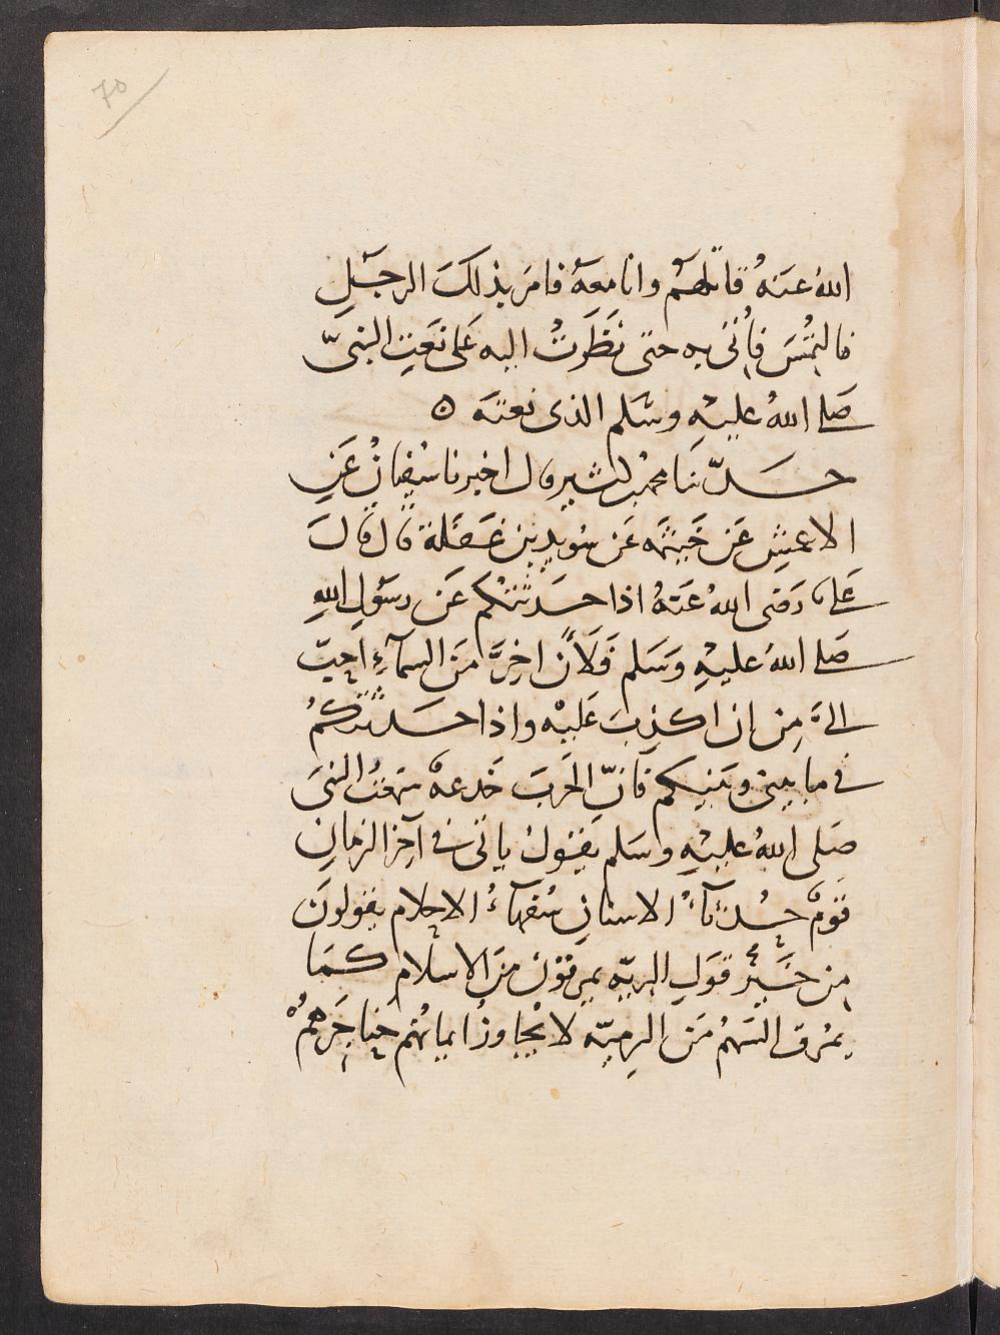 70
الله عَنهُ قاتلهُم وانا معَهُ فامَر بذلكَ الرجلِ
فالتُمسَ فأُتى به حتى نَظرتُ اليه عَلى نَعتِ النبىّ
صَلى اللهُ عليْهِ وسَلم الذى نعتَه ٥
حَدّثنا محمد بن كثير قال اخبرنا سُفيانُ عَنِ
الاعمشِ عَن خَيثمَه عَن سُويدِ بْن غَفَلة قال قالَ
عَلى رَضى اللهُ عَنهُ اذا حَدثتكم عَن رسَولِ اللهِ
صَلى اللهُ عليْهِ وَسَلم فَلَأن اخِرَّ منَ السمآءِ احبّ
الىَّ مِن ان اكذِبَ عَليْه واذا حَدثتكمُ
فى ما بينى وبَينكم فَانّ الحَربَ خَدعةٌ سَمعْتُ النبىَ
صَلى اللهُ عليْهِ وسَلم يقولُ ياتى فى آخِر الزمانِ
قومٌ حُدثآءُ الاسنانِ سُفهآءُ الاحلام يقولونَ
مِن خَيْرِ قوَلِ البريّه يمرقوْنَ منَ الاسلام كمَا
يمْرق السَهمُ مَن الرميّه لا يُجاوزُ ايمانُهم حَناجِرَهمُْ